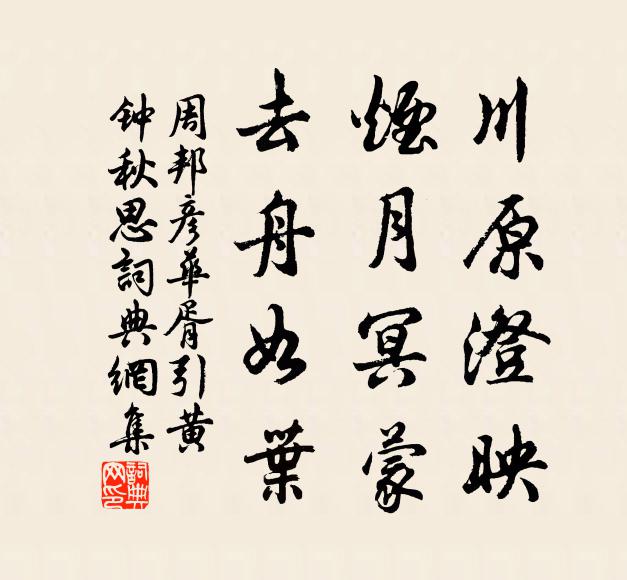 川原澄映
煙月冥蒙
去舟如葉
周邦彦華胥引黄
钟秋思詞典網集
詞典
网印